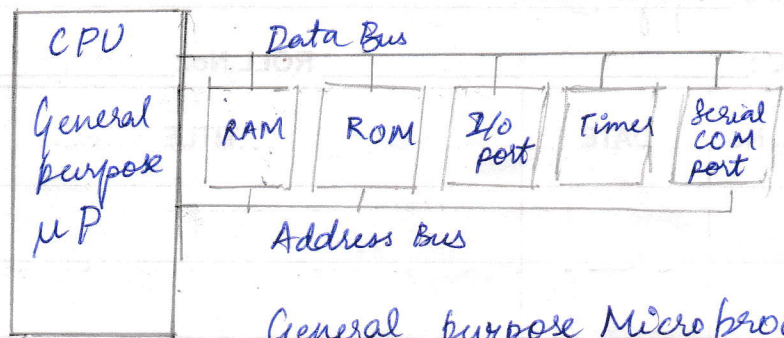 CPU
General
purpose
μP
Data Bus
RAM
ROM
I/o
port
Timer
Serial
COM
port
Address Bus
General purpose